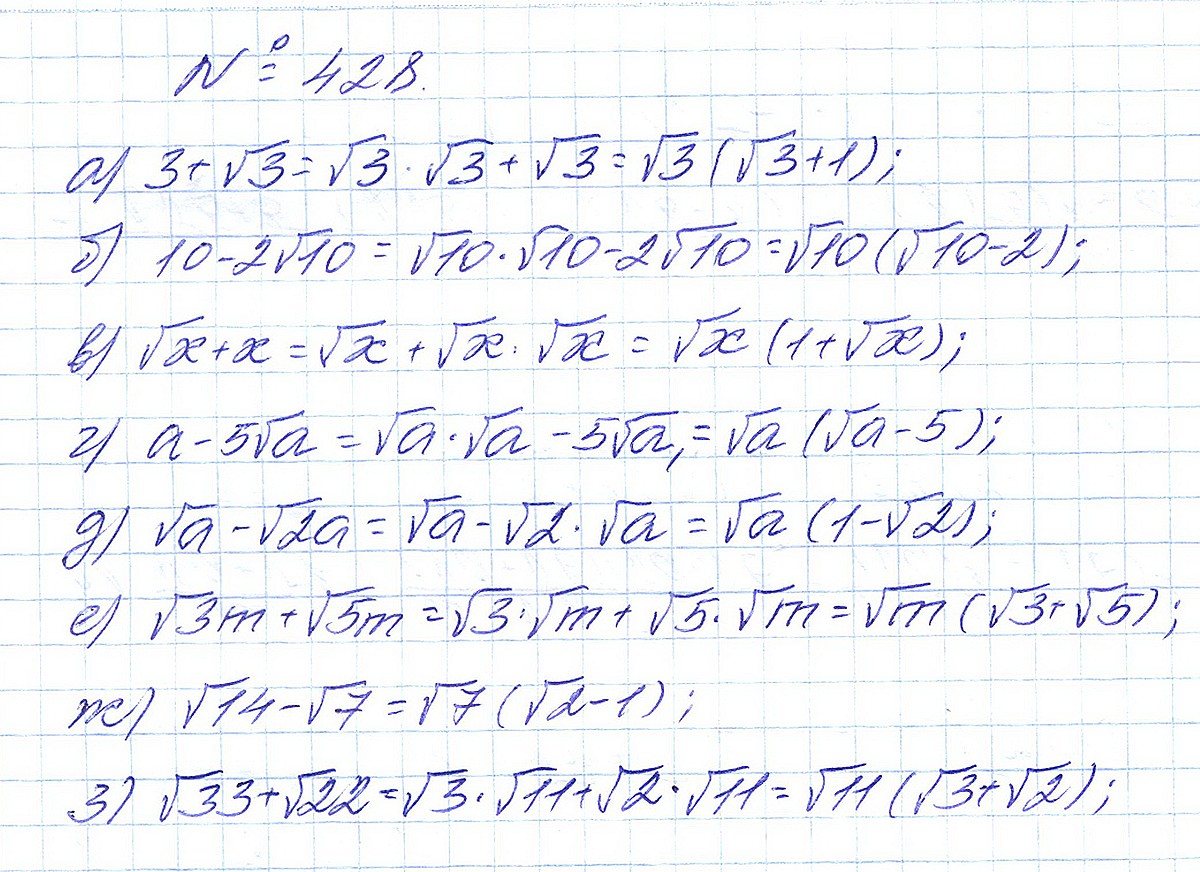 № 428.
а) 3+√3=√3·√3+√3=√3(√3+1);
б) 10-2√10=√10·√10-2√10=√10(√10-2);
в) √x+x=√x+√x·√x=√x(1+√x);
г) a-5√a=√a·√a-5√a,=√a(√a-5);
д) √a-√2a=√a-√2·√a=√a(1-√2);
е) √3m+√5m=√3·√m+√5·√m=√m(√3+√5);
ж) √14-√7=√7(√2-1);
з) √33+√22=√3·√11+√2·√11=√11(√3+√2);